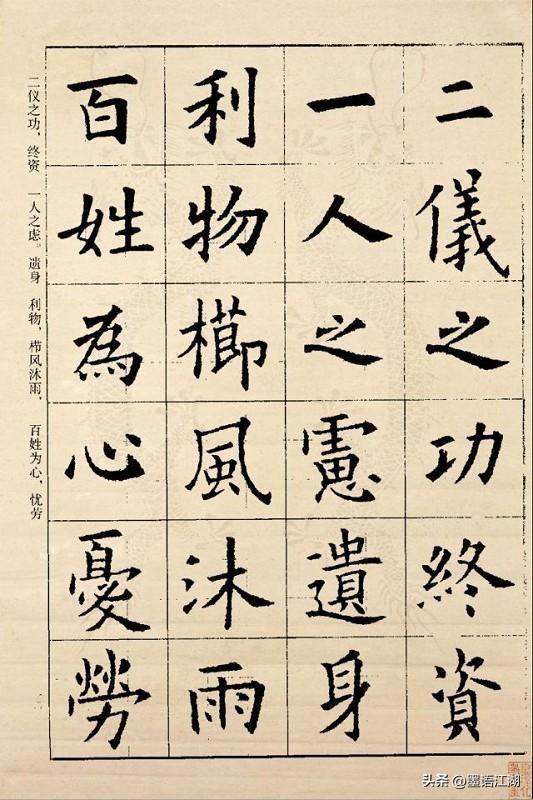 二儀之功終資
一人之慮遺身
利物櫛風沐雨
百姓為心憂勞
二仪之功，终资 一人之虑。遗身 利物，栉风沐雨， 百姓为心，忧劳
头条 @墨语江湖